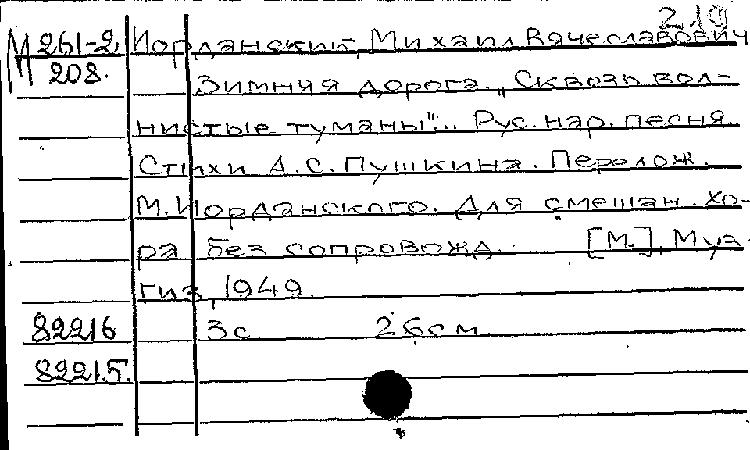 219
М 261-2 Иорданский, Михаил Вячеславович
208.
Зимняя дорога. „Сквозь вол-
нистые туманы"... Рус. нар. песня.
Стихи А.С. Пушкина. Перелож.
М. Иорданского. Для смешан. хо-
ра без сопровожд. [М.], Муз-
гиз, 1949.
82216 3с 26см
82215.